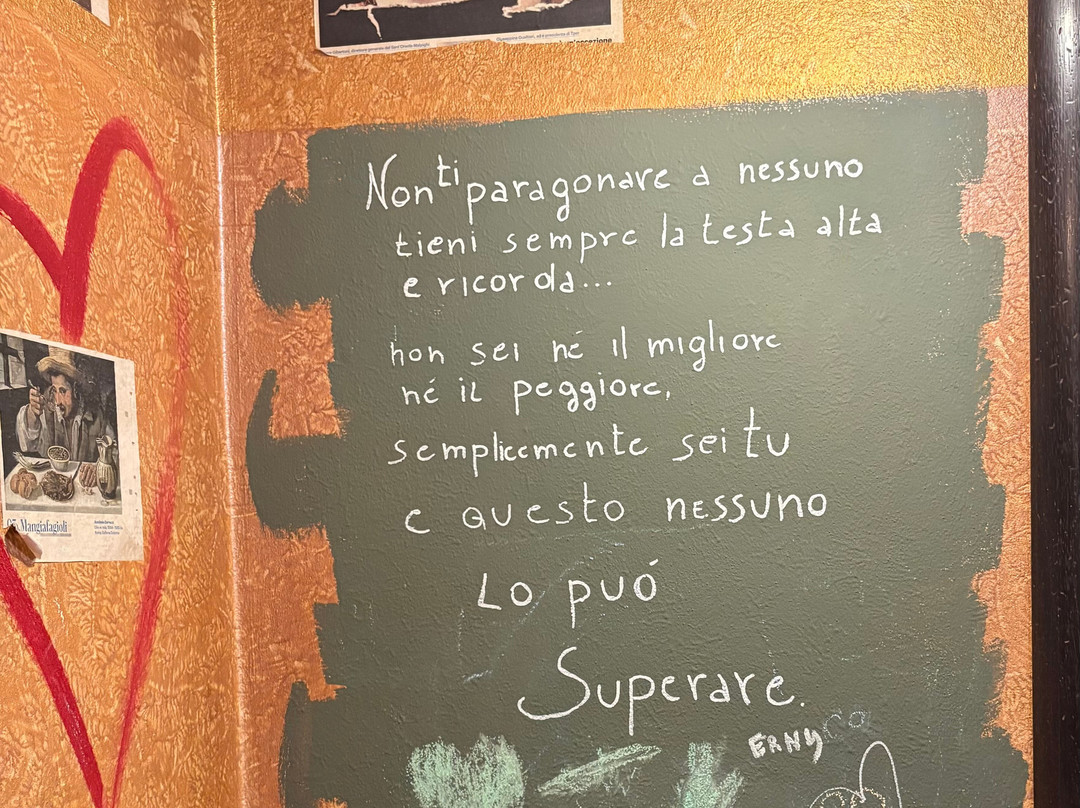 Non ti paragonare a nessuno
tieni sempre la testa alta
e ricorda...
non sei né il migliore
né il peggiore,
semplicemente sei tu
e questo nessuno
Lo puó
Superare.
ERNY
Mangiafagioli